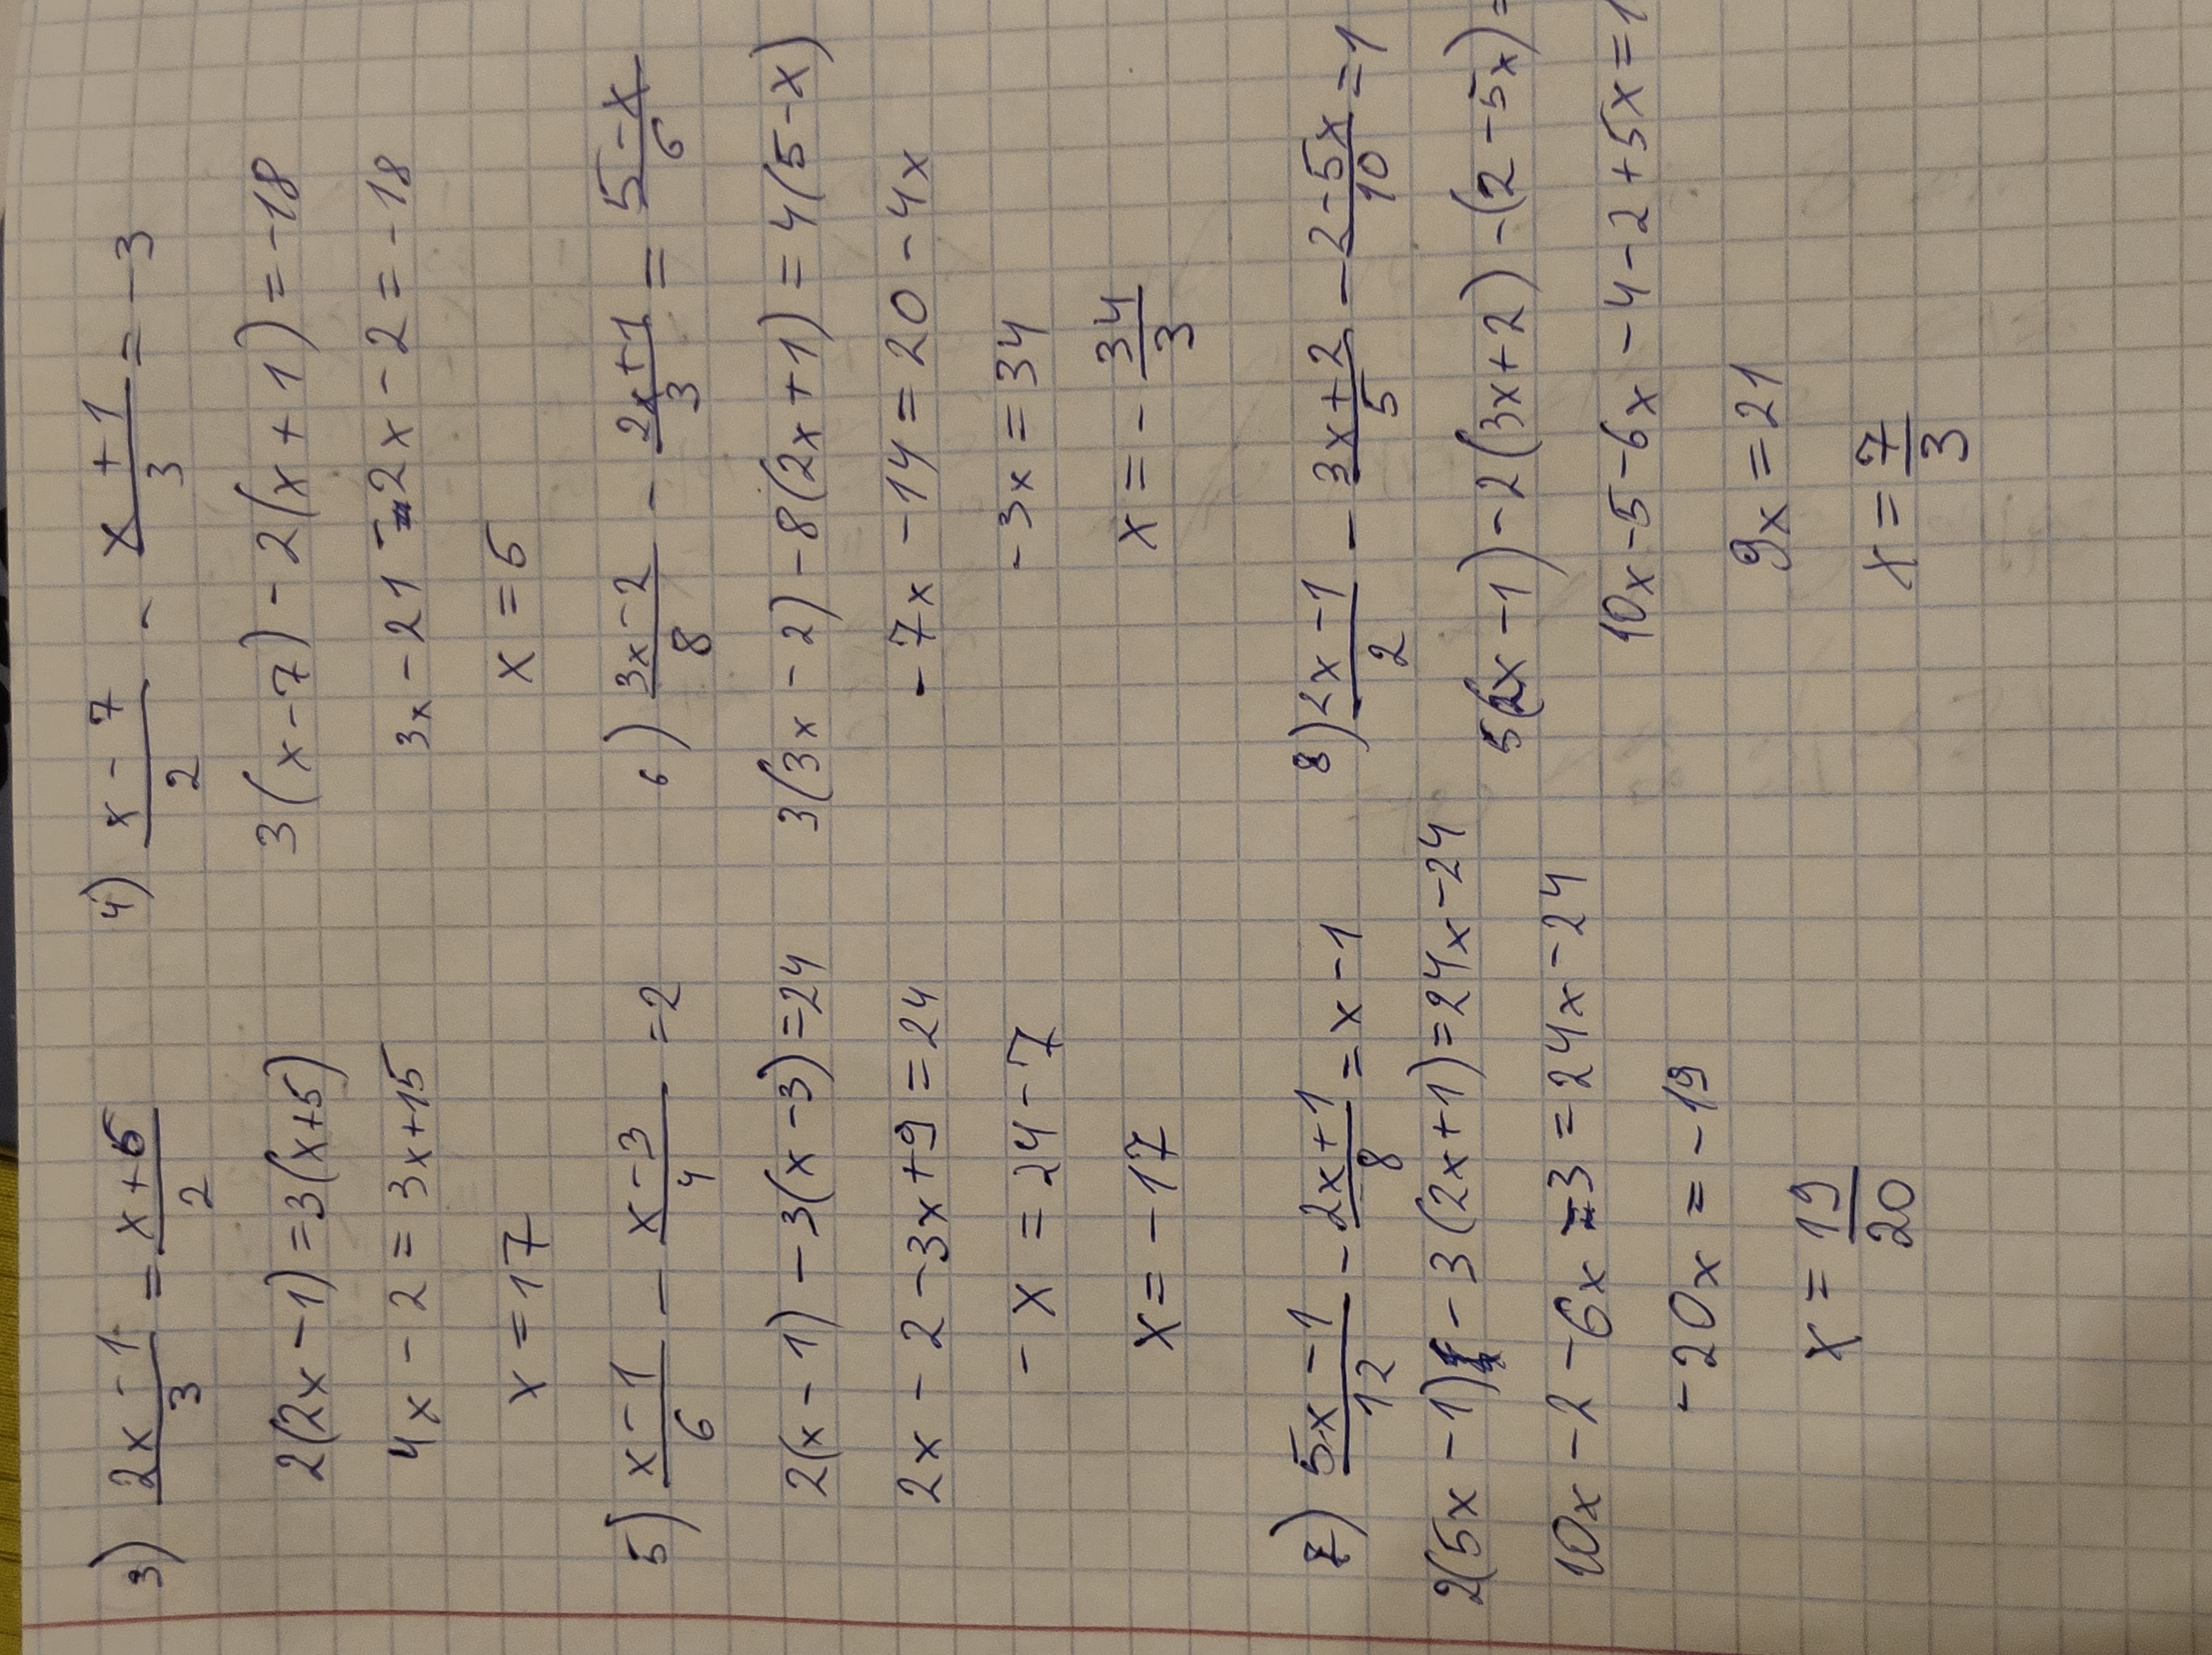 3) (2x - 1)/3 = (x + 5)/2
2(2x - 1) = 3(x + 5)
4x - 2 = 3x + 15
x = 17
4) (x - 7)/2 - (x + 1)/3 = -3
3(x - 7) - 2(x + 1) = -18
3x - 21 - 2x - 2 = -18
x = 5
5) (x - 1)/6 - (x - 3)/4 = 2
2(x - 1) - 3(x - 3) = 24
2x - 2 - 3x + 9 = 24
-x = 24 - 7
x = -17
6) (3x - 2)/8 - (2x + 1)/3 = (5 - x)/6
3(3x - 2) - 8(2x + 1) = 4(5 - x)
-7x - 14 = 20 - 4x
-3x = 34
x = -34/3
7) (5x - 1)/12 - (2x + 1)/8 = x - 1
2(5x - 1) - 3(2x + 1) = 24x - 24
10x - 2 - 6x - 3 = 24x - 24
-20x = -19
x = 19/20
8) (2x - 1)/2 - (3x + 2)/5 - (2 - 5x)/10 = 1
5(2x - 1) - 2(3x + 2) - (2 - 5x) =
10x - 5 - 6x - 4 - 2 + 5x = 1
9x = 21
x = 7/3